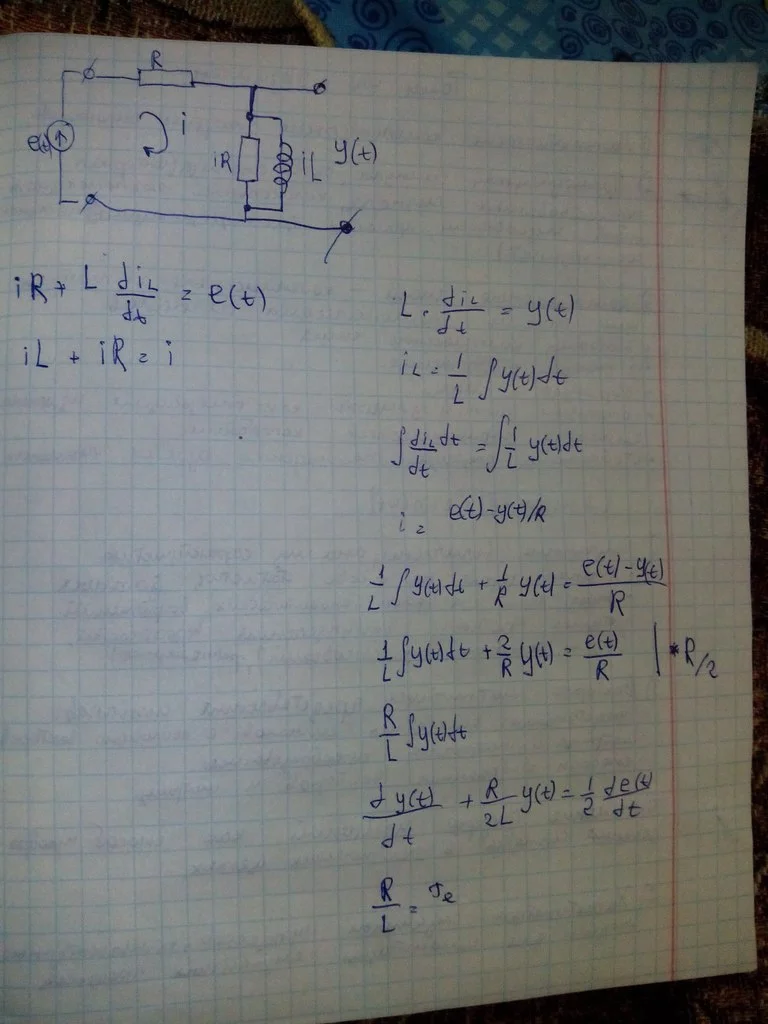 R
e(t)
i
iR
iL
y(t)
iR + L diL/dt = e(t)
iL + iR = i
L · diL/dt = y(t)
iL = 1/L ∫ y(t)dt
∫ diL/dt dt = ∫ 1/L y(t)dt
i = e(t)-y(t)/R
1/L ∫ y(t)dt + 1/R y(t) = e(t)-y(t)/R
1/L ∫ y(t)dt + 2/R y(t) = e(t)/R | * R/2
R/L ∫ y(t)dt
dy(t)/dt + R/2L y(t) = 1/2 de(t)/dt
R/L = τe